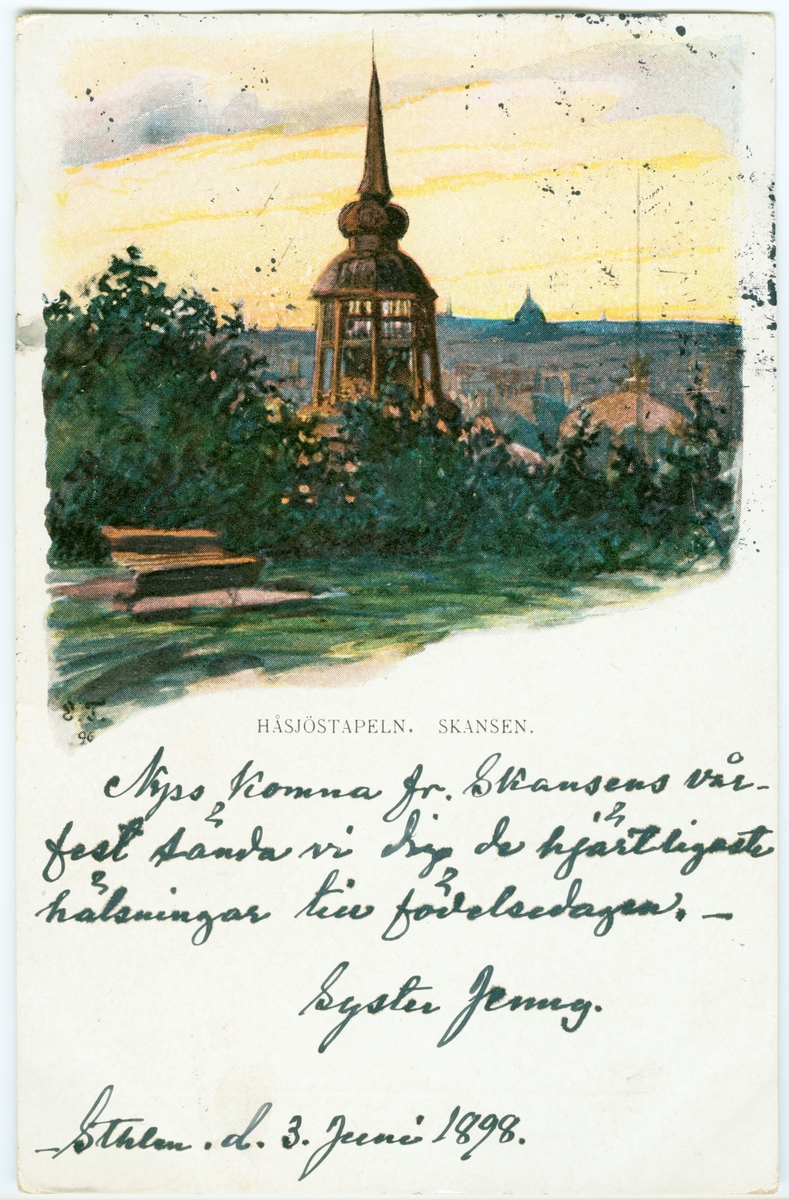 E. T.
96
HÅSJÖSTAPELN. SKANSEN.
Nyss komna fr. Skansens vår-
fest sända vi dig de hjärtligaste
hälsningar till födelsedagen. —
Syster Jenny.
Sthlm. d. 3. Juni 1898.